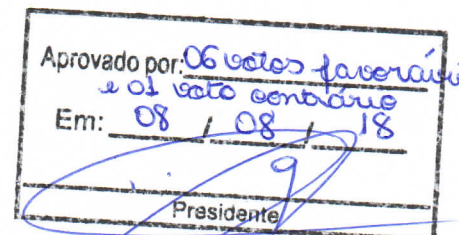 Aprovado por: 06 votos favorávei
e 01 voto contrário
Em: 08 / 08 / 18
Presidente